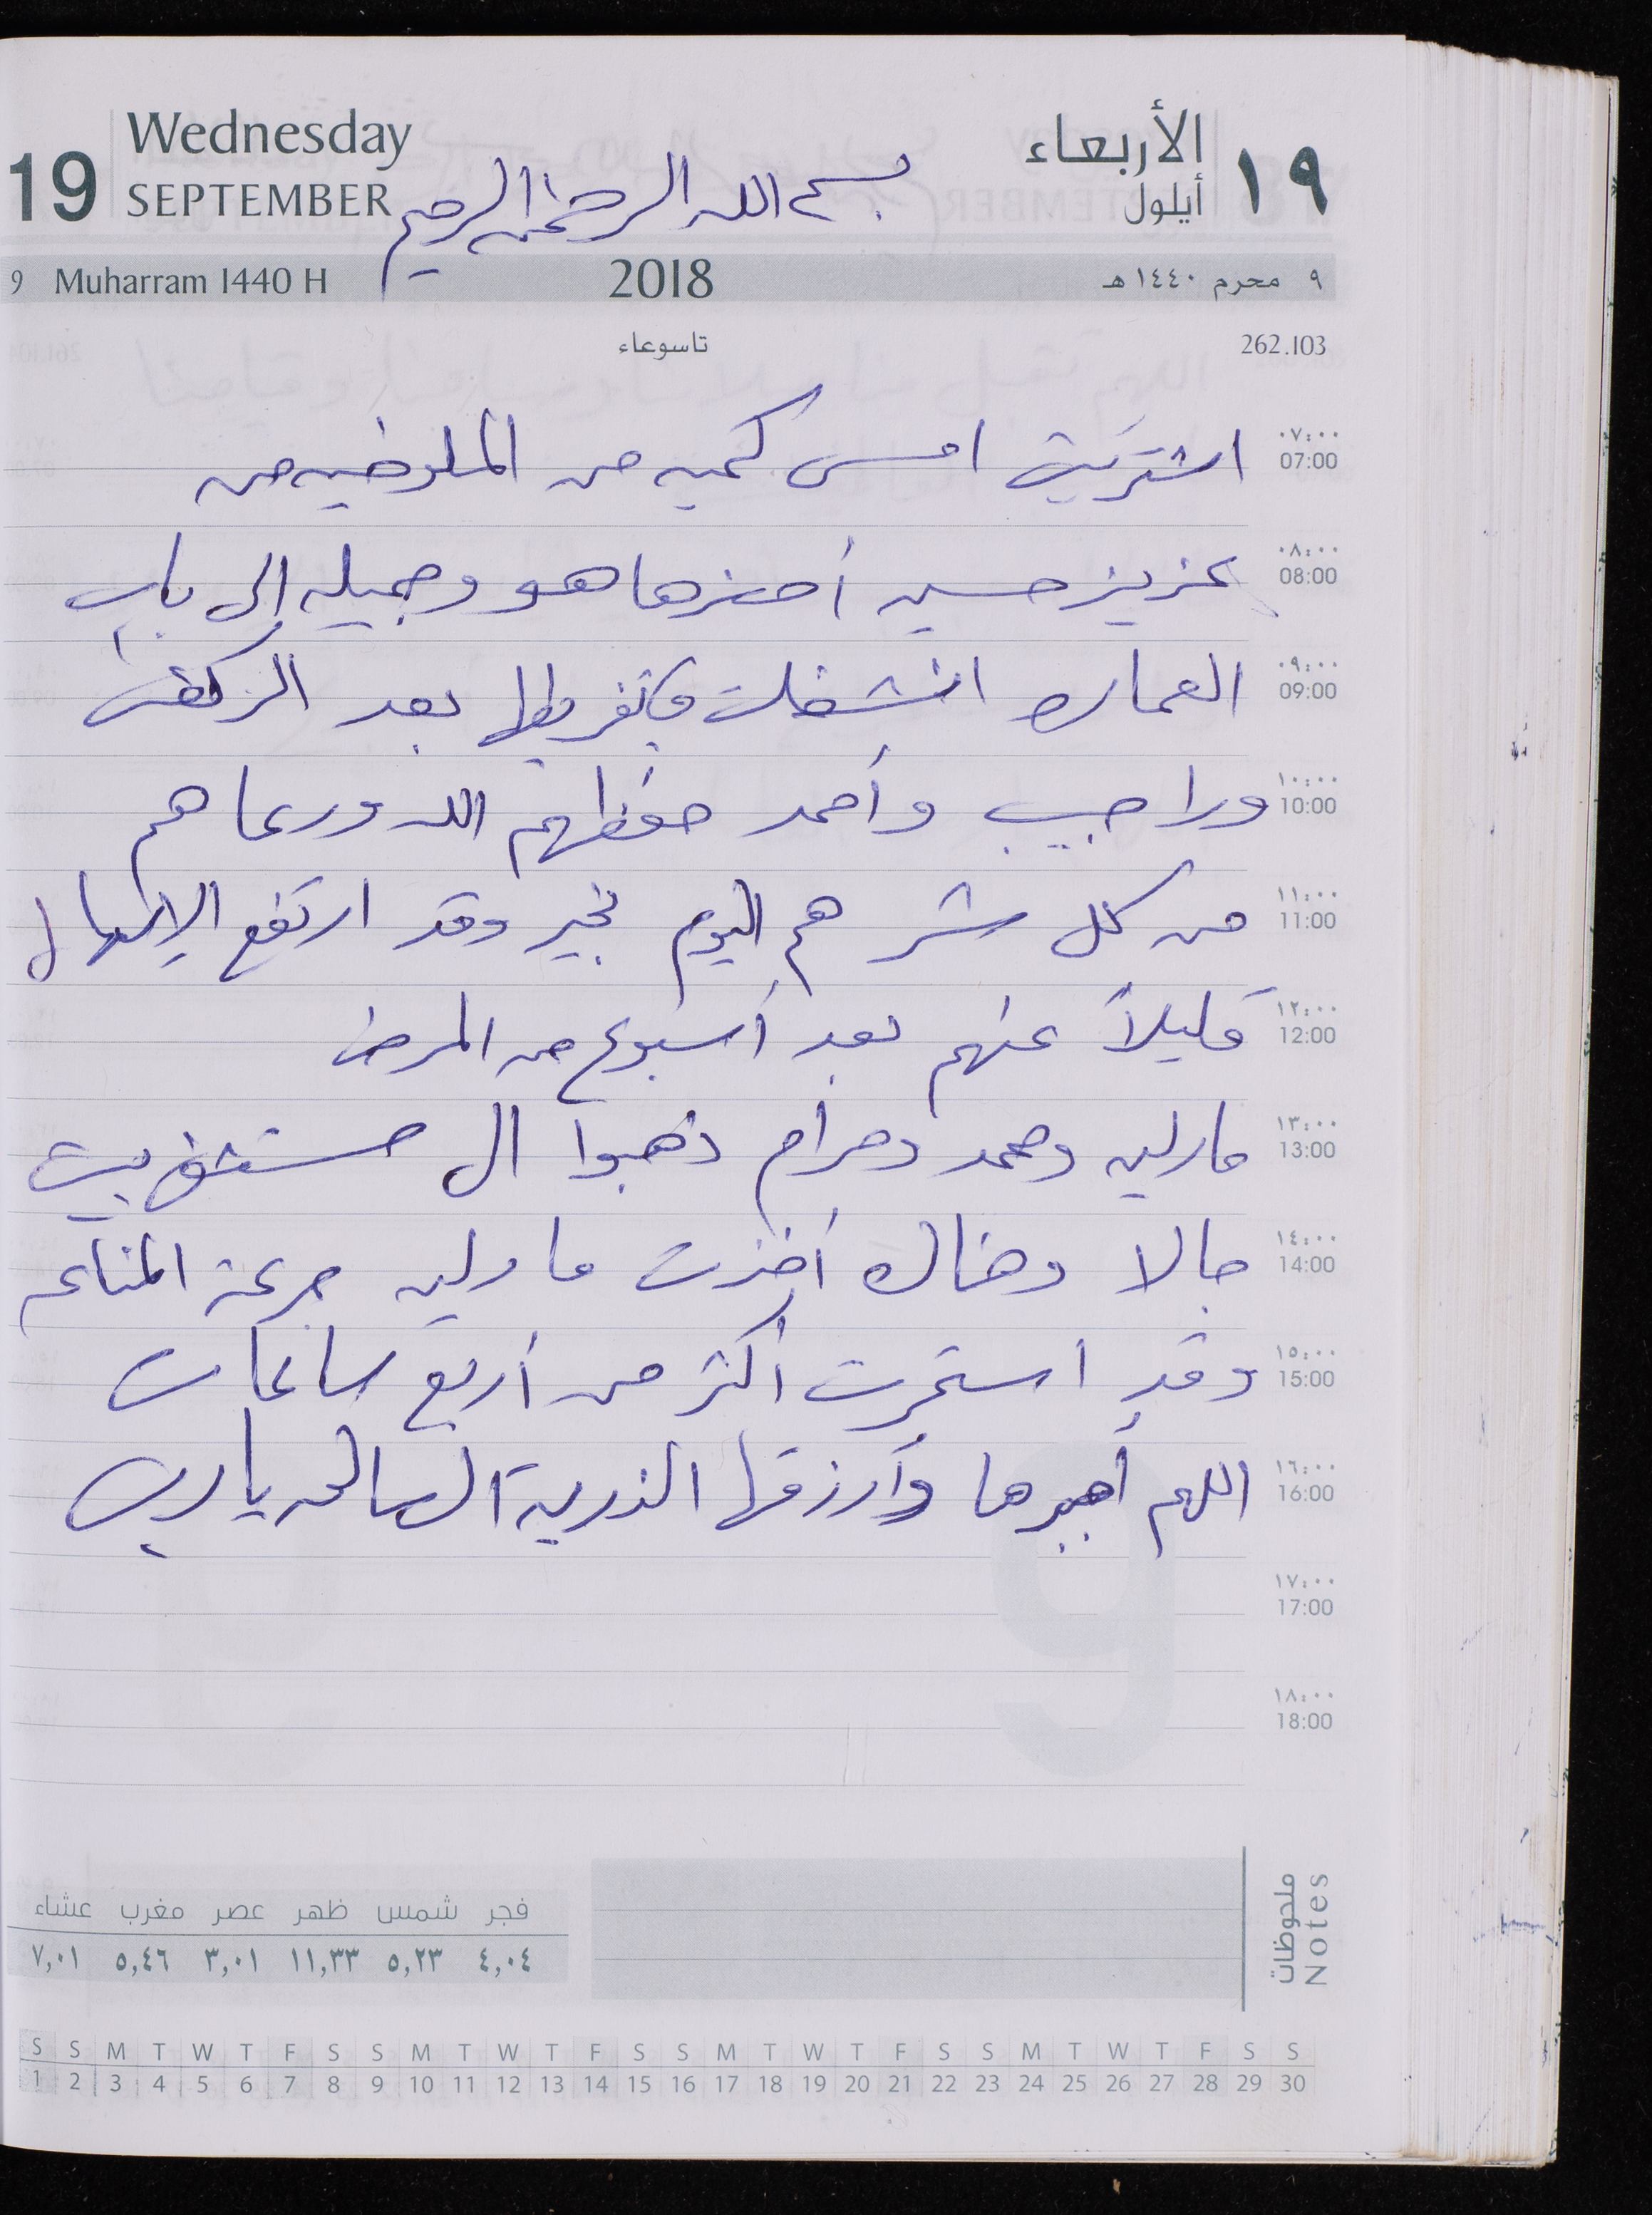 Wednesday الأربعاء
19 SEPTEMBER أيلول ١٩
بسم الله الرحمن الرحيم
9 Muharram 1440 H 2018 ٩ محرم ١٤٤٠ هـ
تاسوعاء 262.103
٠٧:٠٠
07:00 اشتريت امس كميه من الملوخيه من
٠٨:٠٠
08:00 عزيز حسين أحضرها هو وجميله إلى باب
٠٩:٠٠
09:00 العماره انشغلت بعد
١٠:٠٠
10:00 وأحمد حفظهم الله ورعاهم
١١:٠٠
11:00 من كل شر هم اليوم بخير وقد ارتفع الإسهال
١٢:٠٠
12:00 قليلاً عنهم بعد أسبوع من المرض
١٣:٠٠
13:00 مارلين ومحمد ومرام ذهبوا ال مستشفى بيت
١٤:٠٠
14:00 جالا وهناك أخذت مارلين جرعة المناعه
١٥:٠٠
15:00 وقد استمرت أكثر من أربع ساعات
١٦:٠٠
16:00 اللهم أجبرها وأرزقها الذرية الصالحه يا رب
١٧:٠٠
17:00
١٨:٠٠
18:00
ملحوظات
Notes
فجر شمس ظهر عصر مغرب عشاء
٤,٠٤ ٥,٢٣ ١١,٣٣ ٣,٠١ ٥,٤٦ ٧,٠١
S S M T W T F S S M T W T F S S M T W T F S S M T W T F S S
1 2 3 4 5 6 7 8 9 10 11 12 13 14 15 16 17 18 19 20 21 22 23 24 25 26 27 28 29 30